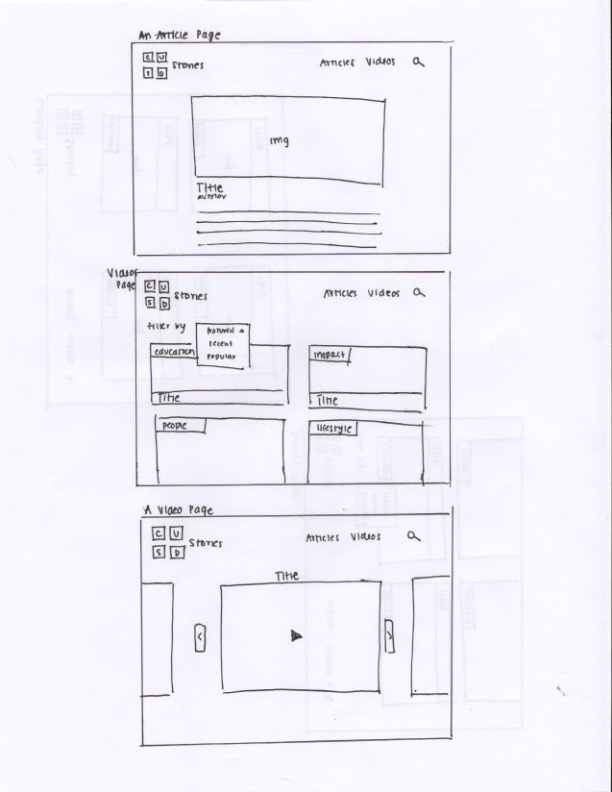 An Article Page
C U
S D
Stories
Articles Videos
img
Title
author
Videos
Page
C U
S D
Stories
Articles Videos
filter by
featured
recent
popular
education
impact
Title
Title
people
lifestyle
A Video Page
C U
S D
Stories
Articles Videos
Title